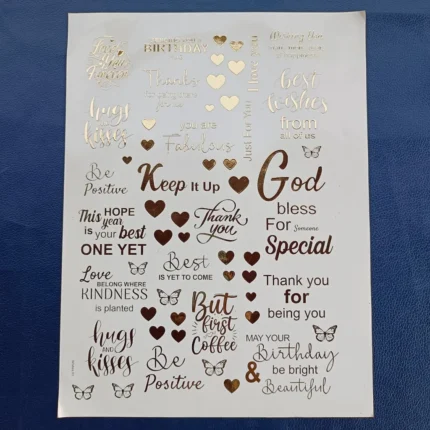 BIRTHDAY
Thanks
hugs
kisses
you are
Fabulous
I love you
Just For You
best
wishes
from
all of us
Be
Positive
Keep It Up
God
bless
For Someone
Special
This HOPE
year
is your best
ONE YET
Thank
you
Best
IS YET TO COME
Love
BELONG WHERE
KINDNESS
is planted
Thank you
for
being you
But
first
Coffee
hugs
AND
kisses
Be
Positive
MAY YOUR
Birthday
be bright
& Beautiful